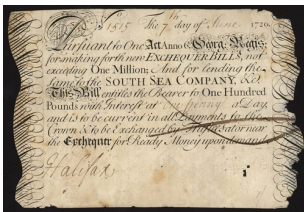 No 1515 The 7th day of June 1720
Pursuant to One Act Anno 6o Georg: Regis;
for making forth new EXCHEQUER BILLS, not
exceeding One Million; And for lending the
same to the SOUTH SEA COMPANY, &c.
This Bill entitles the Bearer to One Hundred
Pounds with Interest at One penny a Day,
and is to be current in all Payments to the
Crown, & to be Exchanged by near
the Exchequer for Ready Money upon demand
Halifax